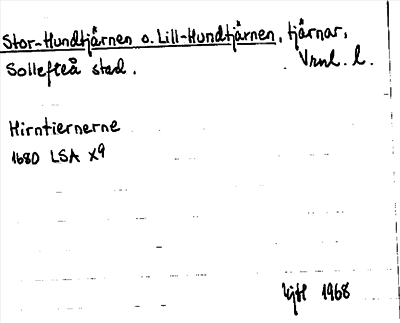 Stor-Hundtjärnen o. Lill-Hundtjärnen, tjärnar,
Sollefteå stad. Vrnl. l.
Hirntiernerne
1680 LSA X9
1968